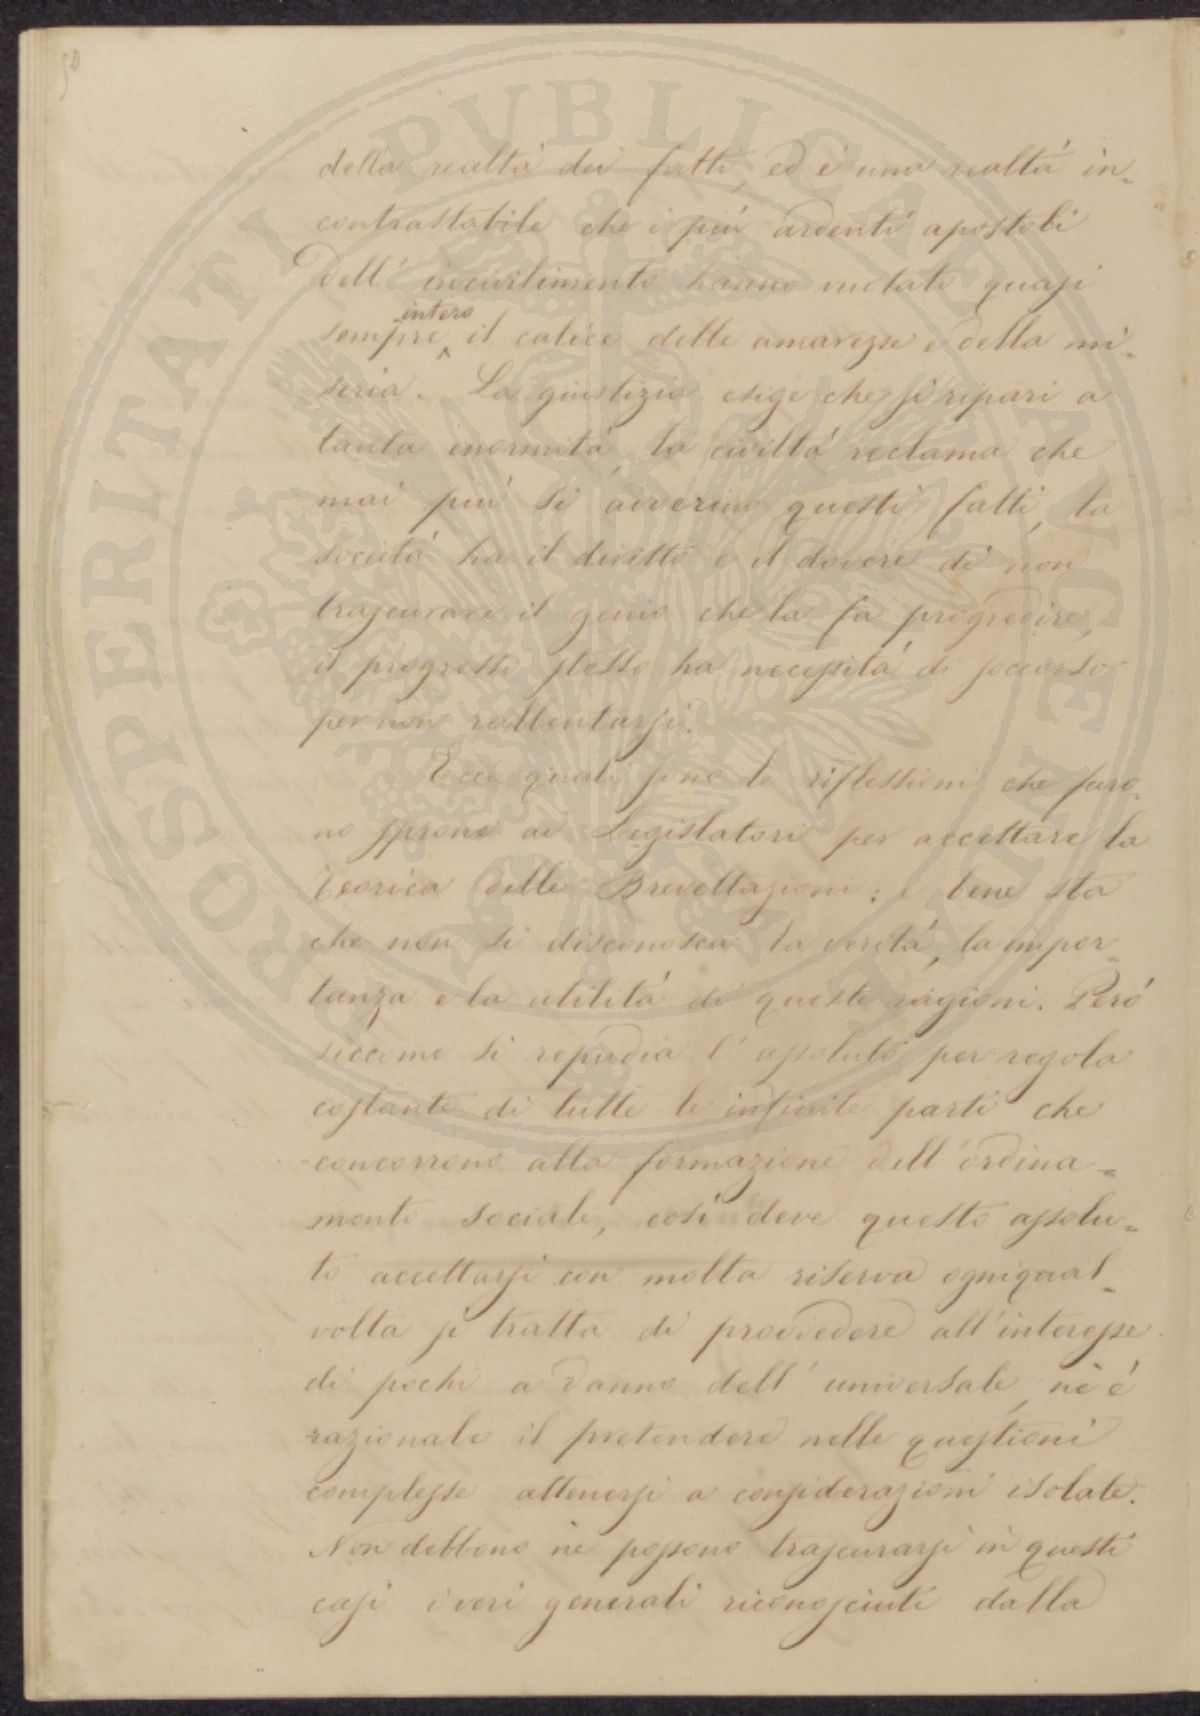 50
della realtá dei fatti, ed é una realtá in-
contrastabile che i piú ardenti apostoli
dell'incivilimento hanno vuotato quasi
sempre intero il calice delle amarezze e della mi-
seria. La giustizia esige che si ripari a
tanta enormitá, la civiltá reclama che
mai piú si avverino questi fatti, la
societá ha il diritto e il dovere di non
trascurare il genio che la fa progredire,
il progresso stesso ha necessitá di soccorso
per non rallentarsi.
Ecco quali sono le riflessioni che furo-
no sprone ai Legislatori per accettare la
teorica delle Brevettazioni: e bene sta
che non si disconosca la veritá, la impor-
tanza e la utilitá di queste ragioni. Peró
siccome si repudia l'assoluto per regola
costante di tutte le infinite parti che
concorrono alla formazione dell'ordina=
mento sociale, cosí deve questo assolu=
to accettarsi con molta riserva ogniqual-
volta si tratta di provvedere all'interesse
di pochi a danno dell'universale, né é
razionale il pretendere nelle questioni
complesse attenersi a considerazioni isolate.
Non debbono né possono trascurarsi in questi
casi i veri generali riconosciuti dalla
PROSPERITATI PUBLICAE AUGENDAE